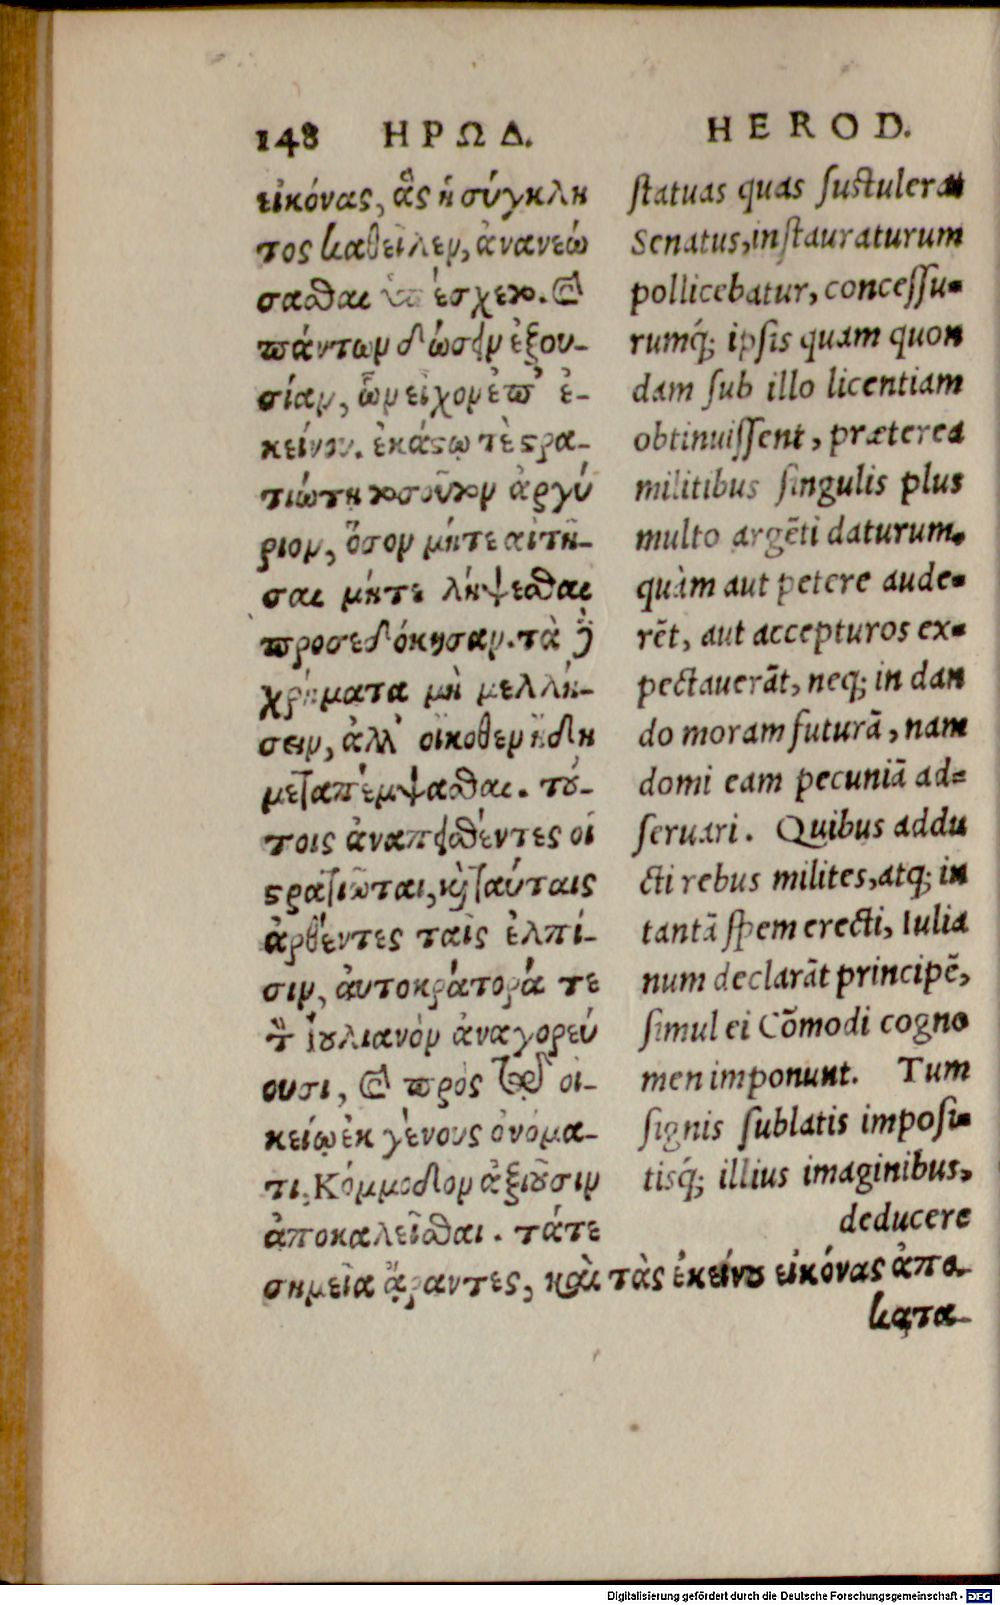 148 ΗΡΩΔ.
εἰκόνας, ἃς ἡ σύγκλη
τος καθεῖλεν, ἀνανεώ
σασθαι ὑπέσχετο. καὶ
πάντων δώσειν ἐξου-
σίαν, ὧν εἶχον ἐπ' ἐ-
κείνου. ἑκάστῳ τὲ στρα-
τιώτῃ τοσοῦτον ἀργύ
ριον, ὅσον μήτε αἰτῆ-
σαι μήτε λήψεσθαι
προσεδόκησαν. τὰ δὲ
χρήματα μὴ μελλή-
σειν, ἀλλ' οἴκοθεν ἤδη
μεταπέμψασθαι. τού-
τοις ἀναπεισθέντες οἱ
στρατιῶται, καὶ ταύταις
ἀρθέντες ταῖς ἐλπί-
σιν, αὐτοκράτορά τε
τὸν Ἰουλιανὸν ἀναγορεύ
ουσι, καὶ πρὸς τῷ οἰ-
κείῳ ἐκ γένους ὀνόμα-
τι, Κόμμοδον ἀξιοῦσιν
ἀποκαλεῖσθαι. τά τε
σημεῖα ἄραντες, καὶ τὰς ἐκείνου εἰκόνας ἀπο-
κατα-
HEROD.
statuas quas sustulerat
Senatus, instauraturum
pollicebatur, concessu-
rumq́; ipsis quam quon
dam sub illo licentiam
obtinuissent, præterea
militibus singulis plus
multo argẽti daturum,
quàm aut petere aude-
rẽt, aut accepturos ex-
pectauerãt, neq; in dan
do moram futurã, nam
domi eam pecuniã ad-
seruari. Quibus addu
cti rebus milites, atq; in
tantã spem erecti, Iulia
num declarãt principẽ,
simul ei Cõmodi cogno
men imponunt. Tum
signis sublatis imposi-
tisq́; illius imaginibus,
deducere
Digitalisierung gefördert durch die Deutsche Forschungsgemeinschaft - DFG